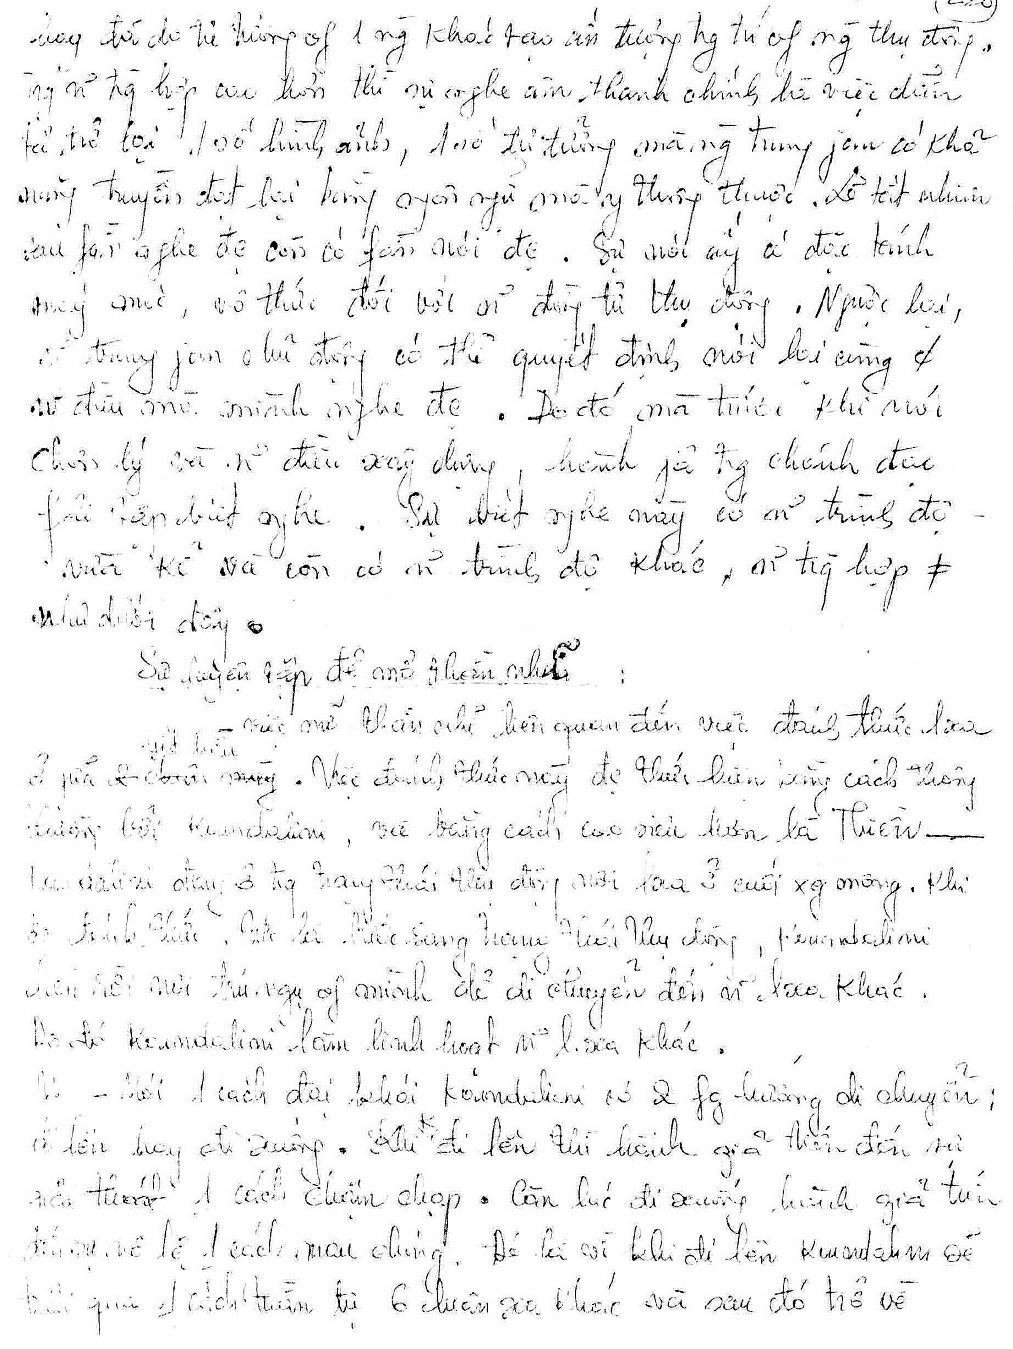 hay đó do tư tưởng of 1 ng khác tạo ấn tượng tg trí of ng thụ động.
tg hợp cao hơn thì sự nghe âm thanh chính là việc diễn
tả trở lại 1 số hình ảnh, 1 số tư tưởng mà ng trung jan có khả
năng truyền đạt lại bằng ngôn ngữ mà y thông thuộc. Lẽ tất nhiên
sau fần nghe đc còn có fần nói đc. Sự nói ấy có đặc tính
máy móc, vô thức đối với đồng tử thụ động. Ngược lại,
trung jan chủ động có thể quyết định nói lại cùng
điều mà mình nghe đc. Do đó mà trước khi nói
Chân lý và điều xây dựng, hành jả tg chánh đạo
fải tập biết nghe. Sự biết nghe này có trình độ
vừa kể và còn có trình độ khác, tg hợp ≠
như dưới đây.
Sự luyện tập để mở thần nhĩ :
việc mở thần nhĩ liên quan đến việc đánh thức lxa
ở . Việc đánh thức này đc thực hiện bằng cách thông
thường bởi Koundalini, và bằng cách cao siêu hơn là Thiền —
đang ở tg trạng thái thụ động nơi lxa ở cuối xg mông. Khi
đánh thức, sang trạng thái thụ động, Koundalini
nơi trú ngụ of mình để di chuyển đến lxa khác.
Do đó Koundalini làm linh hoạt lxa khác.
- Nói 1 cách đại khái Koundalini có 2 fg hướng di chuyển:
đi lên hay đi xuống. Khi đi lên thì hành giả tiến đến sự
1 cách chậm chạp. Còn lúc đi xuống hành giả tiến
1 cách mau chóng. Đó là vì khi đi lên Koundalini sẽ
trải qua 1 cách tuần tự 6 luân xa khác và sau đó trở về